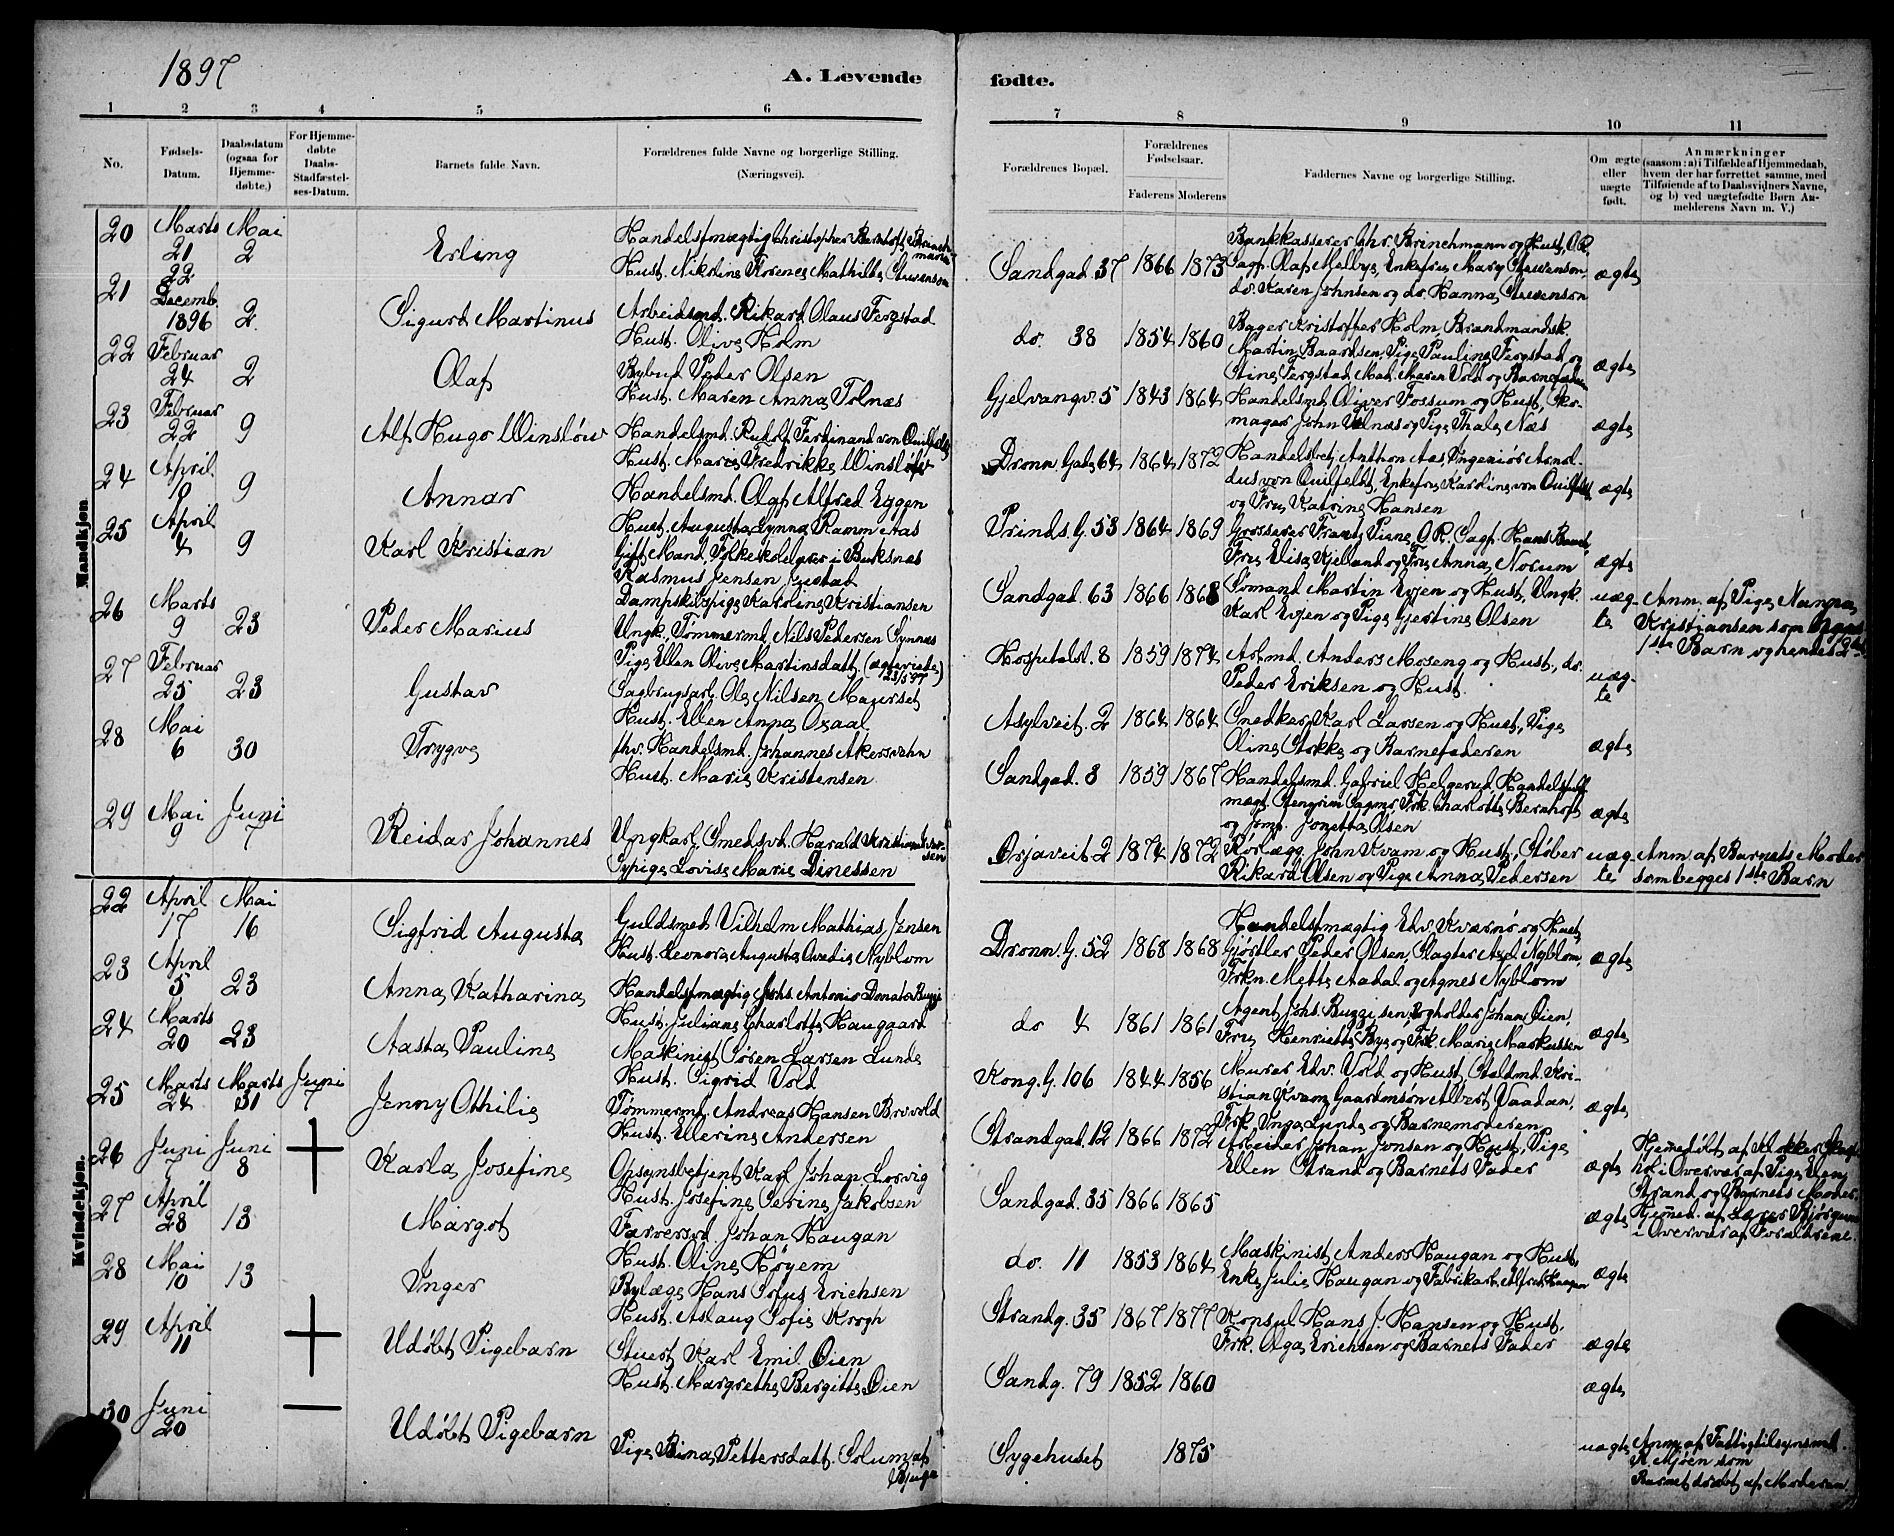 1897
A. Levende fødte.
1 2 3 4 5 6 7 8 9 10 11
No.
Fødsels-Datum.
Daabsdatum (ogsaa for Hjemme-døbte.)
For Hjemme-døbte Daabs-Stadfæstel-ses-Datum.
Barnets fulde Navn.
Forældrenes fulde Navne og borgerlige Stilling. (Næringsvei).
Forældrenes Bopæl.
Forældrenes Fødselsaar.
Faderens Moderens
Faddernes Navne og borgerlige Stilling.
Om ægte eller uægte født.
Anmærkninger (saasom: a) i Tilfælde af Hjemmedaab, hvem der har forrettet samme, med Tilføiende af to Daabsvidners Navne, og b) ved uægtefødte Børn An-melderens Navn m. V.)
Mandkjøn
20 Marts 21 Mai 2 Erling
Handelsfmægtig Christopher
Hust. Nikoline Mathilde
Sandgad. 37 1866 1873
Bankkasserer Chr. Brinchmann og Hust, O.R.
Sagf. Olaf Melbye, Enkefru Mary
do. Karen Johnsen og do. Hanna
ægte
21 22 Decemb. 1896 2. Sigurd Martinus
Arbeidsmd. Rikard Olaus Fergstad
Hust. Olive Holm
do. 38 1854 1860
Bager Kristoffer Holm, Brandmandsk.
Martin Baardsen, Pige Pauline Fergstad og
Stine Fergstad, Mad. Maren Vold og Barnefaderen
ægte
22 Februar 24 2 Olaf
Bybud Peder Olsen
Hust. Maren Anna Tolnæs
Gjelvangv. 5 1843 1864
Handelsmd. Oliver Fossum og Hust, Sko-
mager John Tolnæs og Pige Thale Næs
ægte
23 Februar 22 9 Alf Hugo Winsløw
Handelsmd. Rudolf Ferdinand von Quilfeldt
Hust. Marie Fredrikke Winsløw
Dronn. Gade 64 1864 1872
Handelsbetj. Anthon Aas, Ingeniør Arnol-
dus von Quilfeldt, Enkefru Karoline von Quilfeldt
og Fru Katrine Hansen
ægte
24 April 8 9 Annar
Handelsmd. Olaf Alfred Eggen
Hust. Augusta Lynna Ramm Aas
Prinds. G. 53 1864 1869
Grosserer Frantz Piene, O.R. Sagf. Hans
Fru Elisa Kjelland og Fru Anna Norum
ægte
25 April 4 9 Karl Kristian
Gift Mand, Folkeskolelærer i Buksnæs
Rasmus Jensen Justad
Dampskibspige Karoline Kristiansen
Sandgad. 63 1866 1868
Sømand Martin Evjen og Hust, Ungk.
Karl Evjen og Pige Gjertine Olsen
uæg-
te
Anm. af Pige Nanna
Kristiansen som
1ste Barn og hendes 2det
26 Marts 9 23 Peder Marius
Ungk. Tømmermd. Nils Pedersen Synnes
Pige Ellen Olive Martinsdatt. (ægteviede
23/5 97)
Hospetalsl. 8 1859 1874
Arbmd. Anders Moseng og Hust, do.
Peder Eriksen og Hust.
uæg-
te
27 Februar 25 23 Gustav
Sagbrugsarb. Ole Nilsen Maurset
Hust. Ellen Anna Oxaal
Asylveit. 2 1864 1864
Snedker Karl Larsen og Hust, Pige
Oline Stokke og Barnefaderen
ægte
28 Mai 6 30 Trygve
fhv. Handelsmd. Johannes Akersvehn
Hust. Marie Kristensen
Sandgad. 8 1859 1867
Handelsmd. Gabriel Helgerud, Handelsfuld-
mægt. Stengrim Sagmo, Frk. Charlotte Bernhoft
og Jomf. Jonetta Olsen
ægte
29 Mai 9 Juni 7 Reidar Johannes
Ungkarl, Smedsvd. Harald Kristian Iver-
sen
Sypige Lovise Marie Dinessen
Ørjaveit 2 1874 1872
Rørlægg. John Kvam og Hust, Støber
Rikard Olsen og Pige Anna Pedersen
uæg-
te
Anm. af Barnets Moder
som begges 1ste Barn
Kvindekjøn.
22 April 17 Mai 16 Sigfrid Augusta
Guldsmed Vilhelm Mathias Jensen
Hust. Leonora Augusta Nyblom
Dronn. G. 52 1868 1868
Handelsfmægtig Edv. Kværnø og Hust,
Gjørtler Peder Olsen, Slagter Axel Nyblom,
Frkn. Mette Aadal og Agnes Nyblom
ægte
23 April 5 23 Anna Katharina
Handelsfmægtig Johs. Antonio Donato Buggi
Hust. Juliane Charlotte Haugaard
do 4 1861 1861
Agent Johs. Buggi, sen, Bogholder Johan Øien,
Fru Henriette Bye og Frk. Marie Markussen
ægte
24 Marts 20 23 Aasta Pauline
Maskinist Søren Larsen Lunde
Hust. Sigrid Vold
Kong. G. 106 1844 1856
Murer Edv. Vold og Hust, Staldmd. Kri-
stian Kvam, Gaardmsøn Albert Vaadan,
Frk. Inga Lunde og Barnemoderen
ægte
25 Marts 24 Marts 31 Juni 7 Jenny Othilie
Tømmermd. Andreas Hansen Brvold
Hust. Ellerine Andersen
Strandgad. 12 1866 1872
Arbeider Johan Jonsen og Hust, Pige
Ellen Strand og Barnets Fader
ægte
Hjemedøbt af Klokker
i Overvær af Pige Elen
Strand og Barnets Moder.
26 Juni 7 Juni 8 + Karla Josefine
Opsynsbetjent Karl Johan Lorvig
Hust. Josefine Serine Jakobsen
Sandgad. 35 1866 1865
ægte
Hjemed. af Lærer Bjørgum
i Overvær af Forældrene.
27 April 28 13 Margot
Farversvd. Johan Haugan
Hust. Oline Høyem
do. 11 1853 1864
Maskinist Anders Haugan og Hust,
Enke Julie Haugan og Fabrikarb. Alfred Haugan
ægte
28 Mai 10 13 Inger
Bylæge Hans Sofus Erichsen
Hust. Aslaug Sofie Krogh
Strandg. 35 1867 1877
Konsul Hans J. Hansen og Hust.
Frk. Olga Erichsen og Barnets Fader
ægte
29 April 11 + Udøbt Pigebarn
Stuert Karl Emil Øien
Hust. Margrethe Bergitte Øien
Sandg. 79 1852 1860
ægte
30 Juni 20 — Udøbt Pigebarn
Pige Bina Pettersdatt. Solum af
Bjugn
Sygehuset 1875
uægte
Anm. af Fattigtilsynsmd.
R. Mjøen som
Barnet dræbt af Moderen